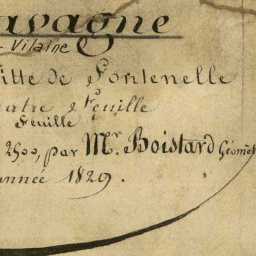 avagne
-Vilaine
itte de Fontenelle
uatre Feuille
Feuille
2500, par Mr. Boistard Géomèt
année 1829.